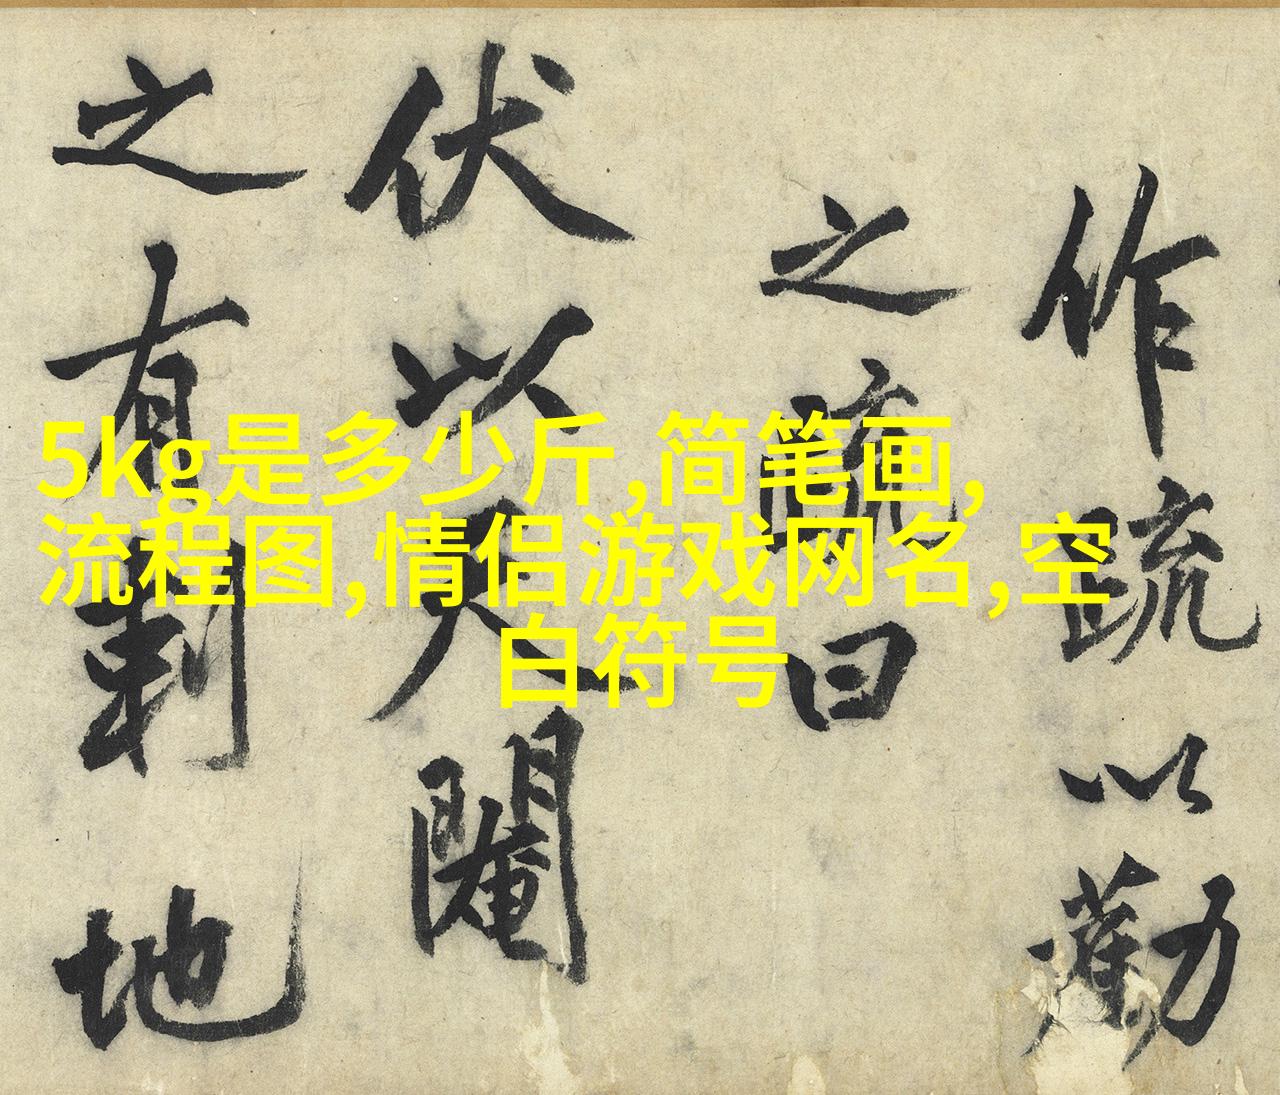 作疏以勸
之疏曰
伏以天閹
之有剌地
5kg是多少斤,简笔画,
流程图,情侣游戏网名,空
白符号